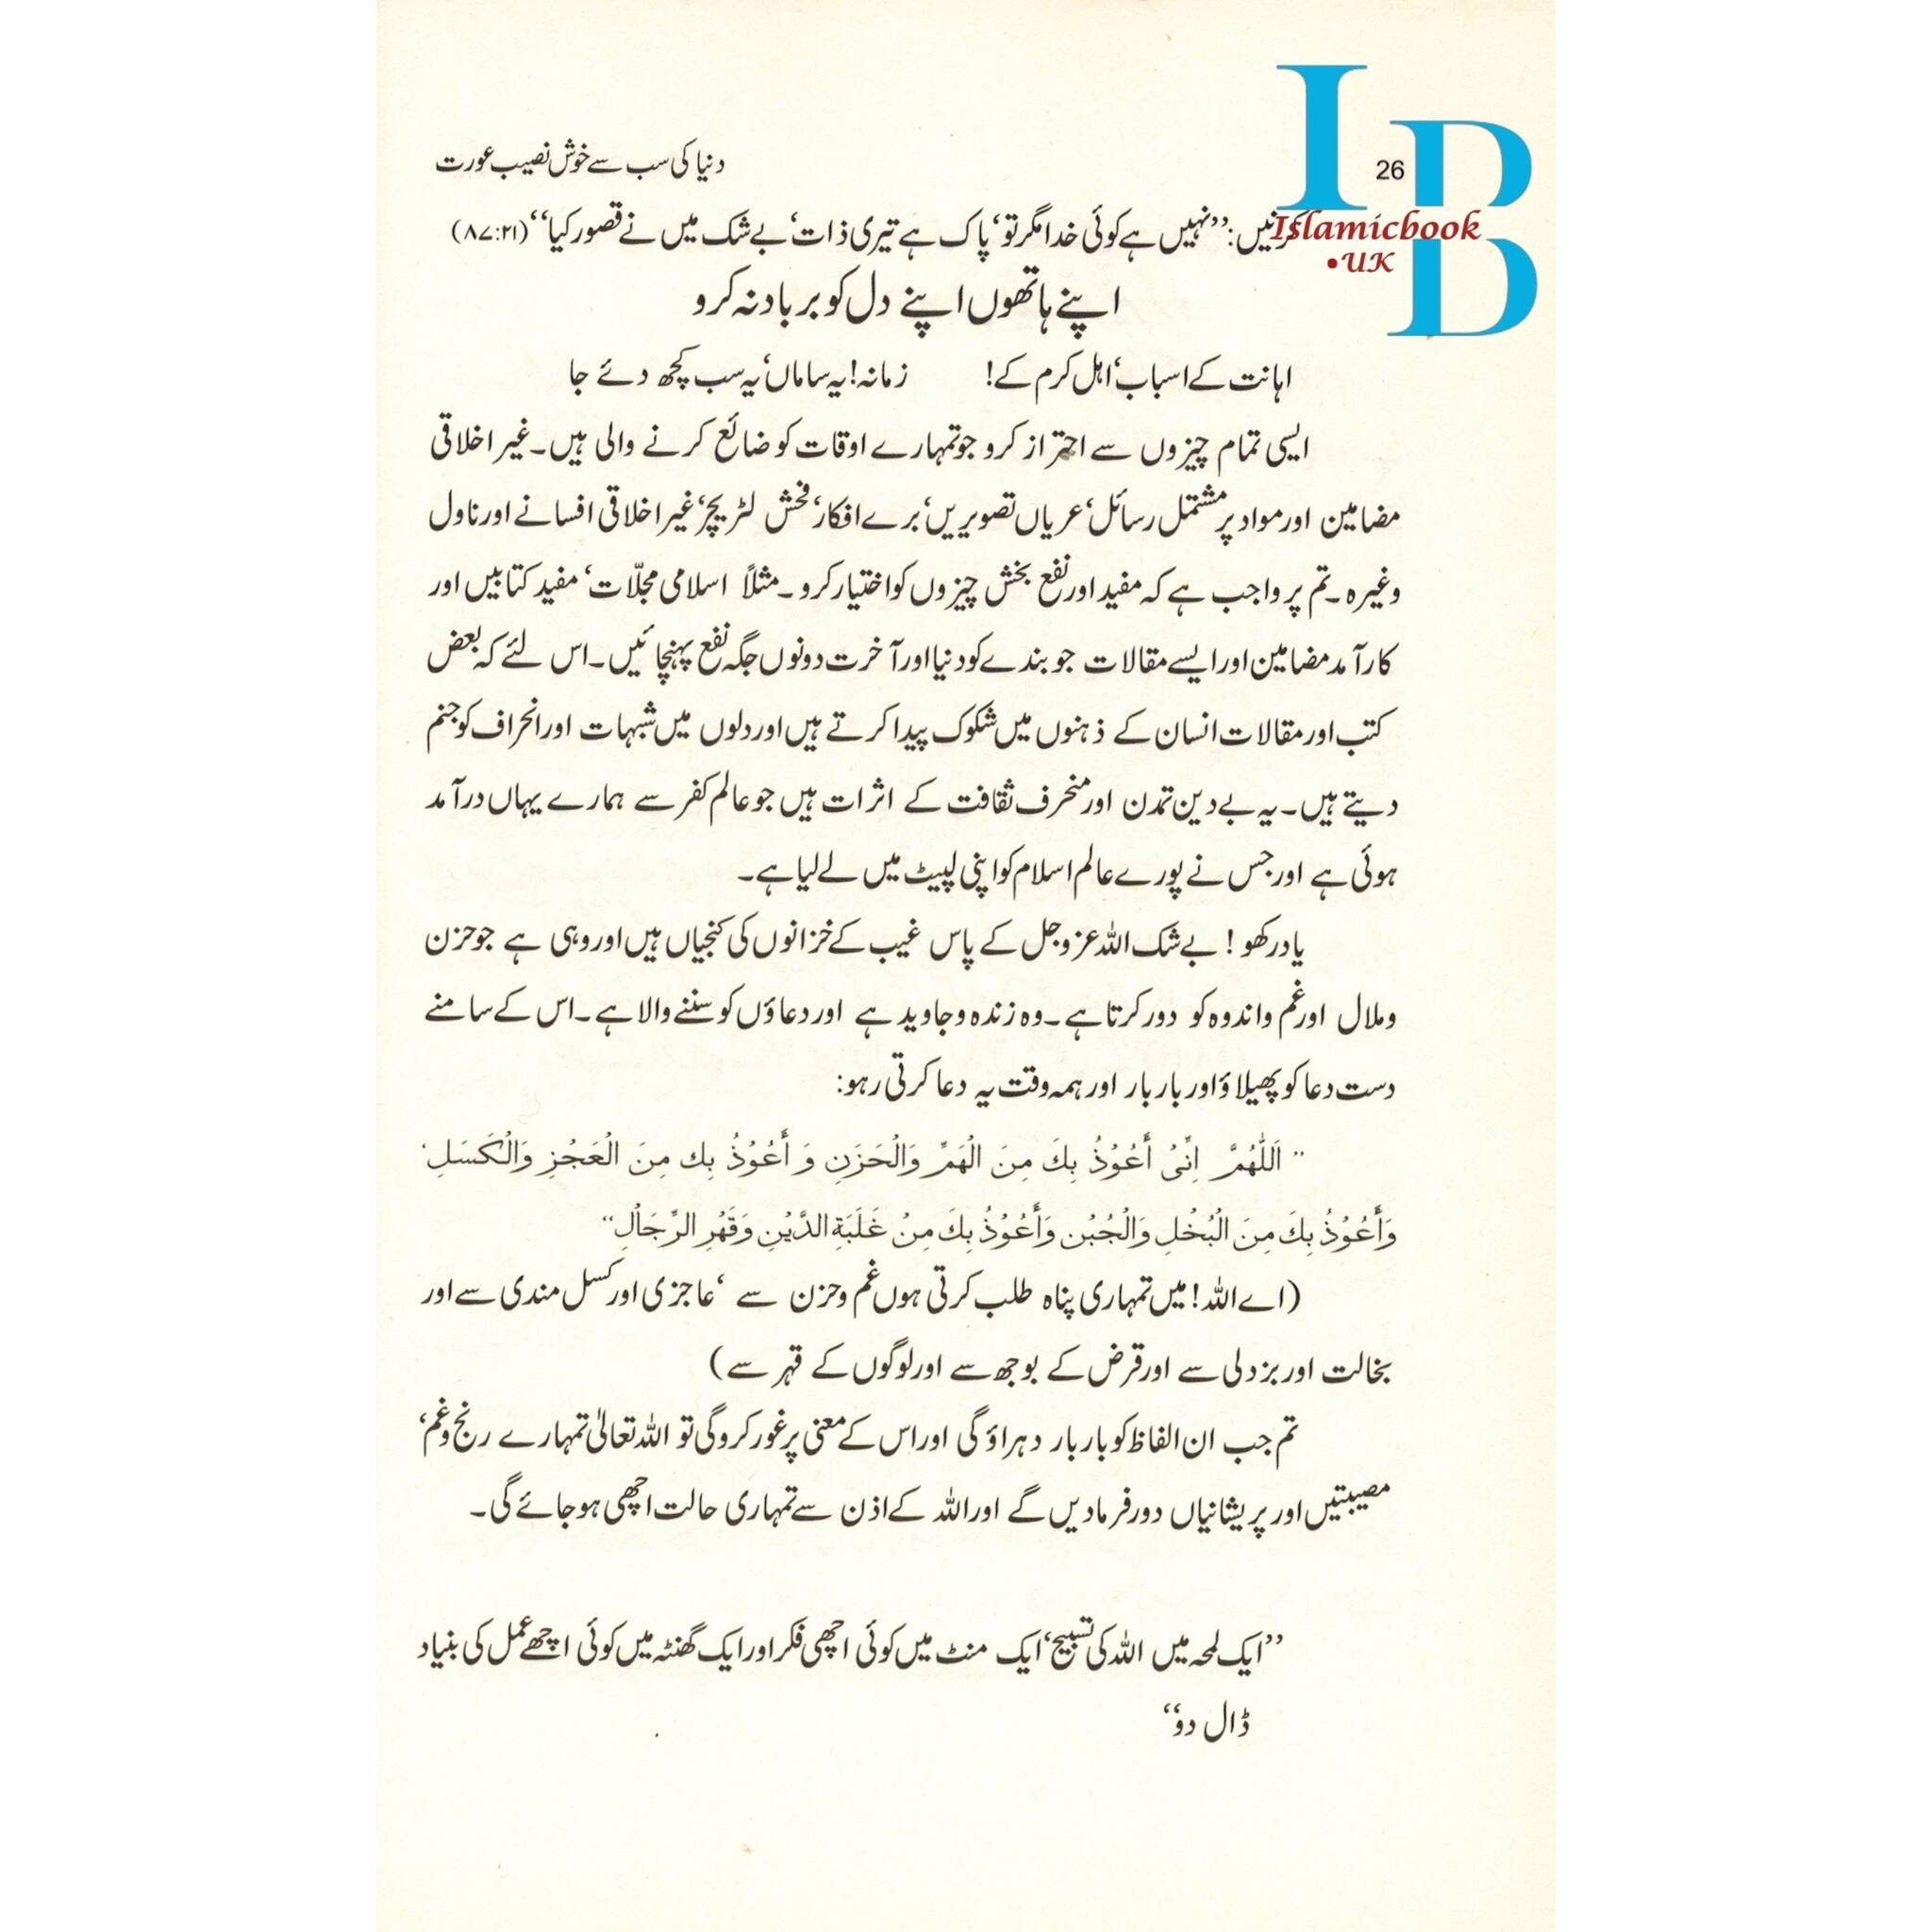 26
دنیا کی سب سے خوش نصیب عورت
IBD
Islamicbook
•UK
کرنیں: ’’نہیں ہے کوئی خدا مگر تو‘ پاک ہے تیری ذات‘ بے شک میں نے قصور کیا‘‘ (۸۷:۲۱)
اپنے ہاتھوں اپنے دل کو برباد نہ کرو
اہانت کے اسباب‘ اہل کرم کے! زمانہ! یہ ساماں‘ یہ سب کچھ دئے جا
ایسی تمام چیزوں سے احتراز کرو جو تمہارے اوقات کو ضائع کرنے والی ہیں۔ غیر اخلاقی
مضامین اور مواد پر مشتمل رسائل‘ عریاں تصویریں‘ برے افکار‘ فحش لٹریچر‘ غیر اخلاقی افسانے اور ناول
وغیرہ۔ تم پر واجب ہے کہ مفید اور نفع بخش چیزوں کو اختیار کرو۔ مثلاً اسلامی مجلّات‘ مفید کتابیں اور
کارآمد مضامین اور ایسے مقالات جو بندے کو دنیا اور آخرت دونوں جگہ نفع پہنچائیں۔ اس لئے کہ بعض
کتب اور مقالات انسان کے ذہنوں میں شکوک پیدا کرتے ہیں اور دلوں میں شبہات اور انحراف کو جنم
دیتے ہیں۔ یہ بے دین تمدن اور منحرف ثقافت کے اثرات ہیں جو عالم کفر سے ہمارے یہاں درآمد
ہوئی ہے اور جس نے پورے عالم اسلام کو اپنی لپیٹ میں لے لیا ہے۔
یاد رکھو! بے شک اللہ عزوجل کے پاس غیب کے خزانوں کی کنجیاں ہیں اور وہی ہے جو حزن
وملال اور غم واندوہ کو دور کرتا ہے۔ وہ زندہ وجاوید ہے اور دعاؤں کو سننے والا ہے۔ اس کے سامنے
دست دعا کو پھیلاؤ اور بار بار اور ہمہ وقت یہ دعا کرتی رہو:
’’ اَللّٰهُمَّ اِنِّیْ أَعُوْذُ بِكَ مِنَ الْهَمِّ وَالْحَزَنِ وَ أَعُوْذُ بِك مِنَ الْعَجْزِ وَالْكَسَلِ‘
وَأَعُوْذُ بِكَ مِنَ الْبُخْلِ وَالْجُبْنِ وَأَعُوْذُ بِكَ مِنْ غَلَبَةِ الدَّیْنِ وَقَهْرِ الرِّجَالِ‘‘
(اے اللہ! میں تمہاری پناہ طلب کرتی ہوں غم وحزن سے‘ عاجزی اور کسل مندی سے اور
بخالت اور بزدلی سے اور قرض کے بوجھ سے اور لوگوں کے قہر سے)
تم جب ان الفاظ کو بار بار دہراؤ گی اور اس کے معنی پر غور کرو گی تو اللہ تعالیٰ تمہارے رنج وغم‘
مصیبتیں اور پریشانیاں دور فرما دیں گے اور اللہ کے اذن سے تمہاری حالت اچھی ہو جائے گی۔
’’ایک لمحہ میں اللہ کی تسبیح‘ ایک منٹ میں کوئی اچھی فکر اور ایک گھنٹہ میں کوئی اچھے عمل کی بنیاد
ڈال دو‘‘